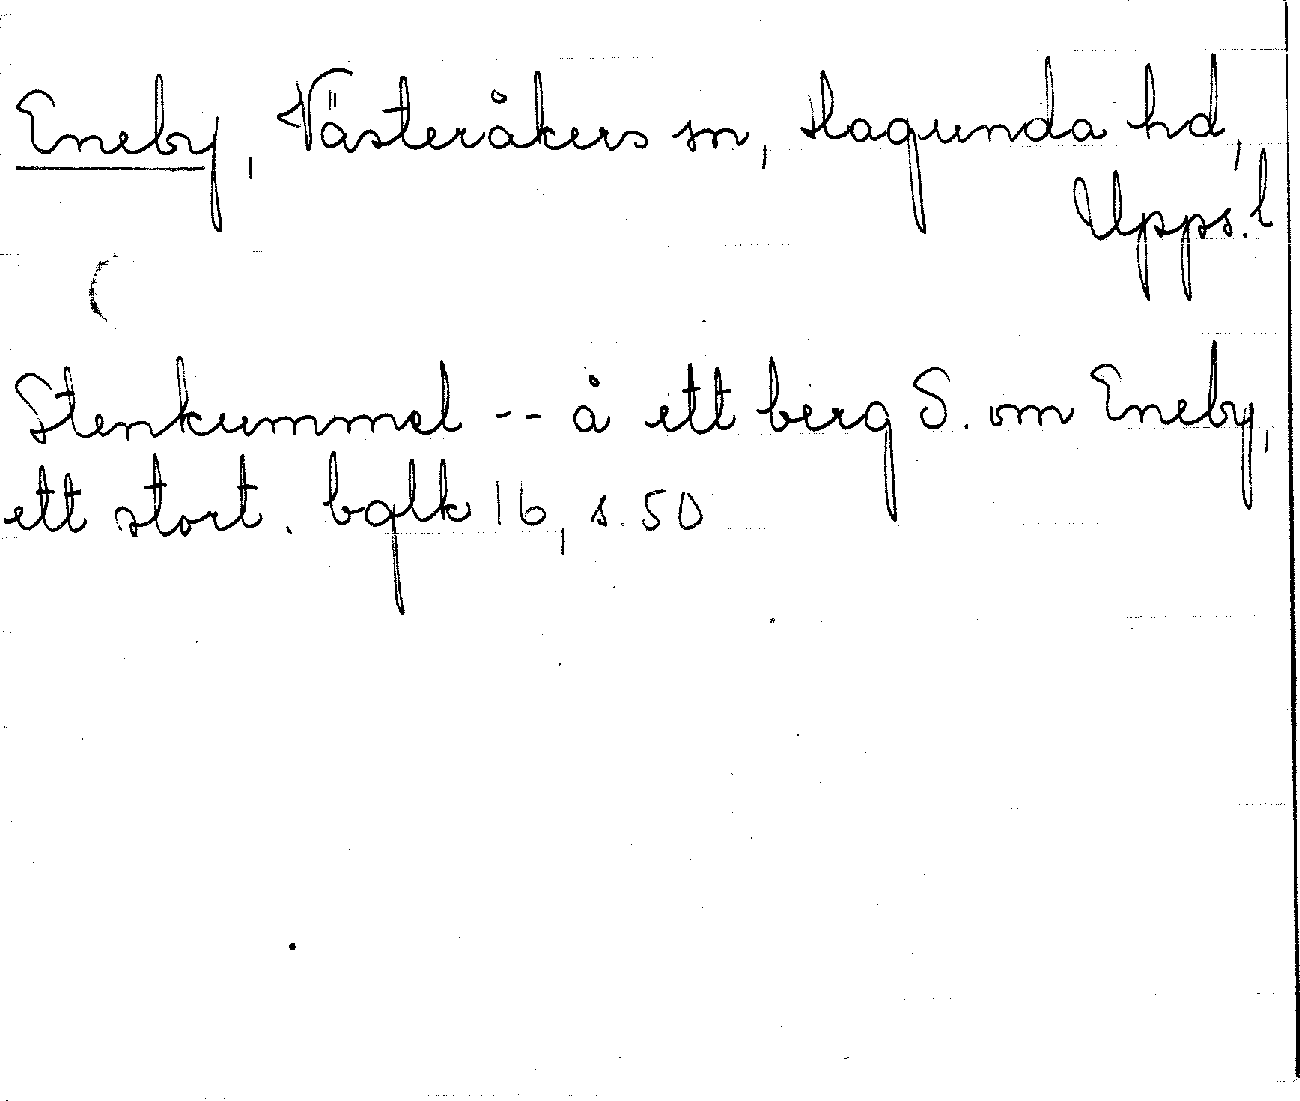 Eneby, Västeråkers sn, Hagunda hd,
Upps. l
Stenkummel -- å ett berg S. om Eneby,
ett stort. bglk 16, s. 50